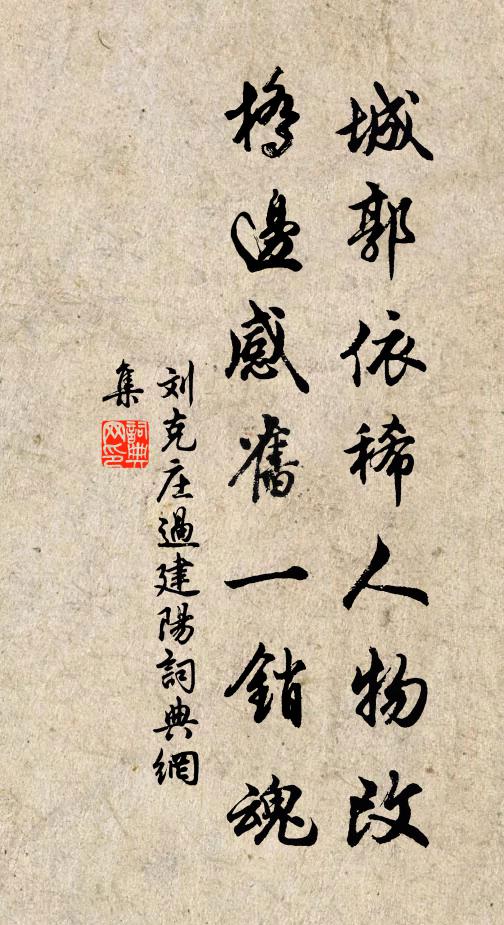 城郭依稀人物改
橋邊感舊一銷魂
刘克庄過建陽詞典網
集
詞典
网印